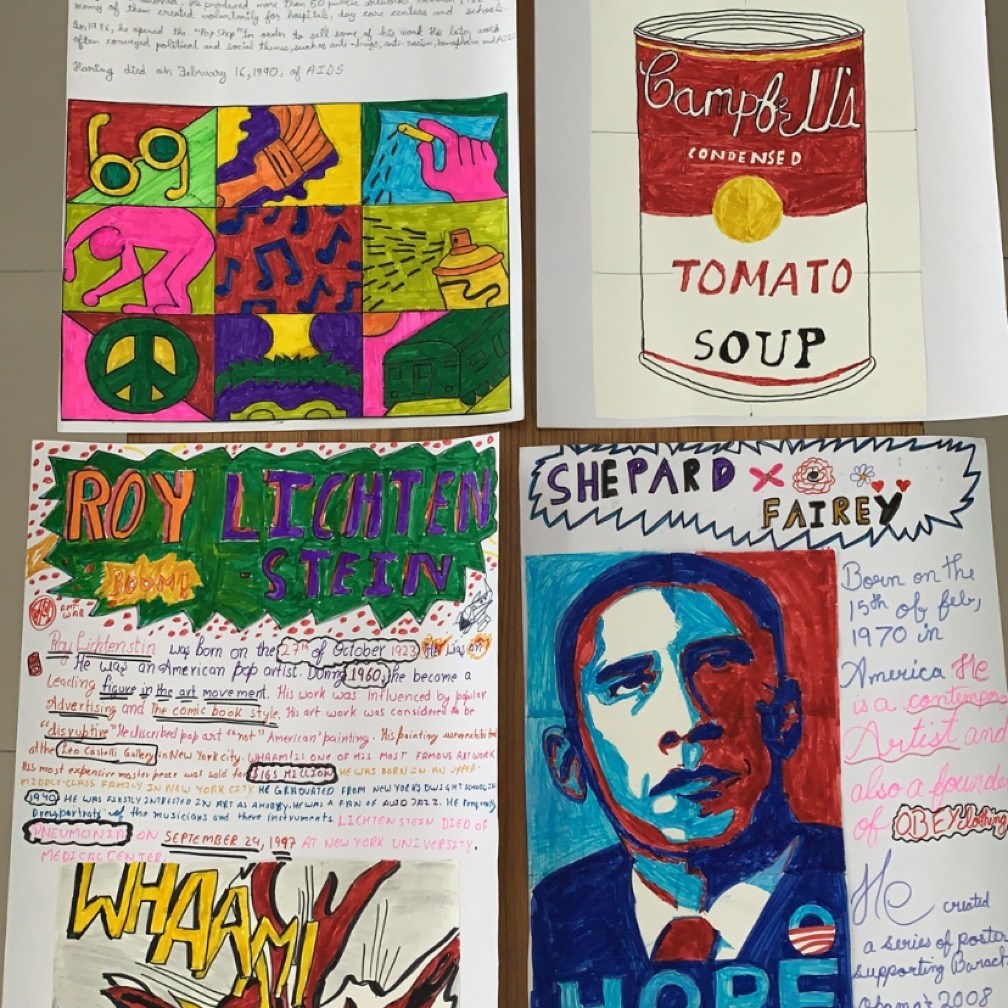 he produced more than 50 public artworks
many of them created voluntarily for hospitals, day care centers and schools.
In 1986, he opened the "Pop Shop" in order to sell some of his work. His later work
often conveyed political and social themes, such as anti-drugs, anti-racism, homophobia and AIDS
Haring died on February 16, 1990, of AIDS
Campbells
CONDENSED
TOMATO
SOUP
ROY LICHTEN
-STEIN
BOOM!
ART
WAR
Roy Lichtenstin was born on the 27th of October 1923
He was an American pop artist. During 1960, he become a
leading figure in the art movement. His work was influenced by popular
Advertising and The comic book style. His art work was considered to be
"disruptive" He discribed pop art "not" 'American' painting. His painting was exhibited
at the Leo Castelli Gallery in New York city. WHAAM! IS ONE OF HIS MOST FAMOUS ARTWORK
His most expensive master peace was sold for $165 MILLION HE WAS BORN IN AN UPPER-
MIDDLE-CLASS FAMILY IN NEW YORK CITY. HE GRADUATED FROM NEW YORK'S DWIGHT SCHOOL IN
1940 HE WAS FIRSTLY INTRESTED IN ART AS A HOBBY. HE WAS A FAN OF JAZZ. HE frequently
Drew portrats of the musicians and there instruments LICHTENSTEIN DIED OF
PNEUMONIA ON SEPTEMBER 29, 1997 AT NEW YORK UNIVERSITY.
MEDICAL CENTER.
WHAAM!
SHEPARD
FAIREY
Born on the
15th of feb,
1970 in
America He
is a contempo
Artist and
also a founde
of OBEY clothing
He created
a series of poster
supporting Barack
Obama's 2008
HOPE